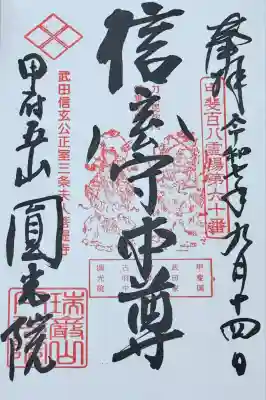 奉拝 令和七年九月十四日
甲斐百八霊場第六十番
信玄守本尊
武田信玄公正室三条夫人菩提寺
甲府五山 圓光院
瑞巌山